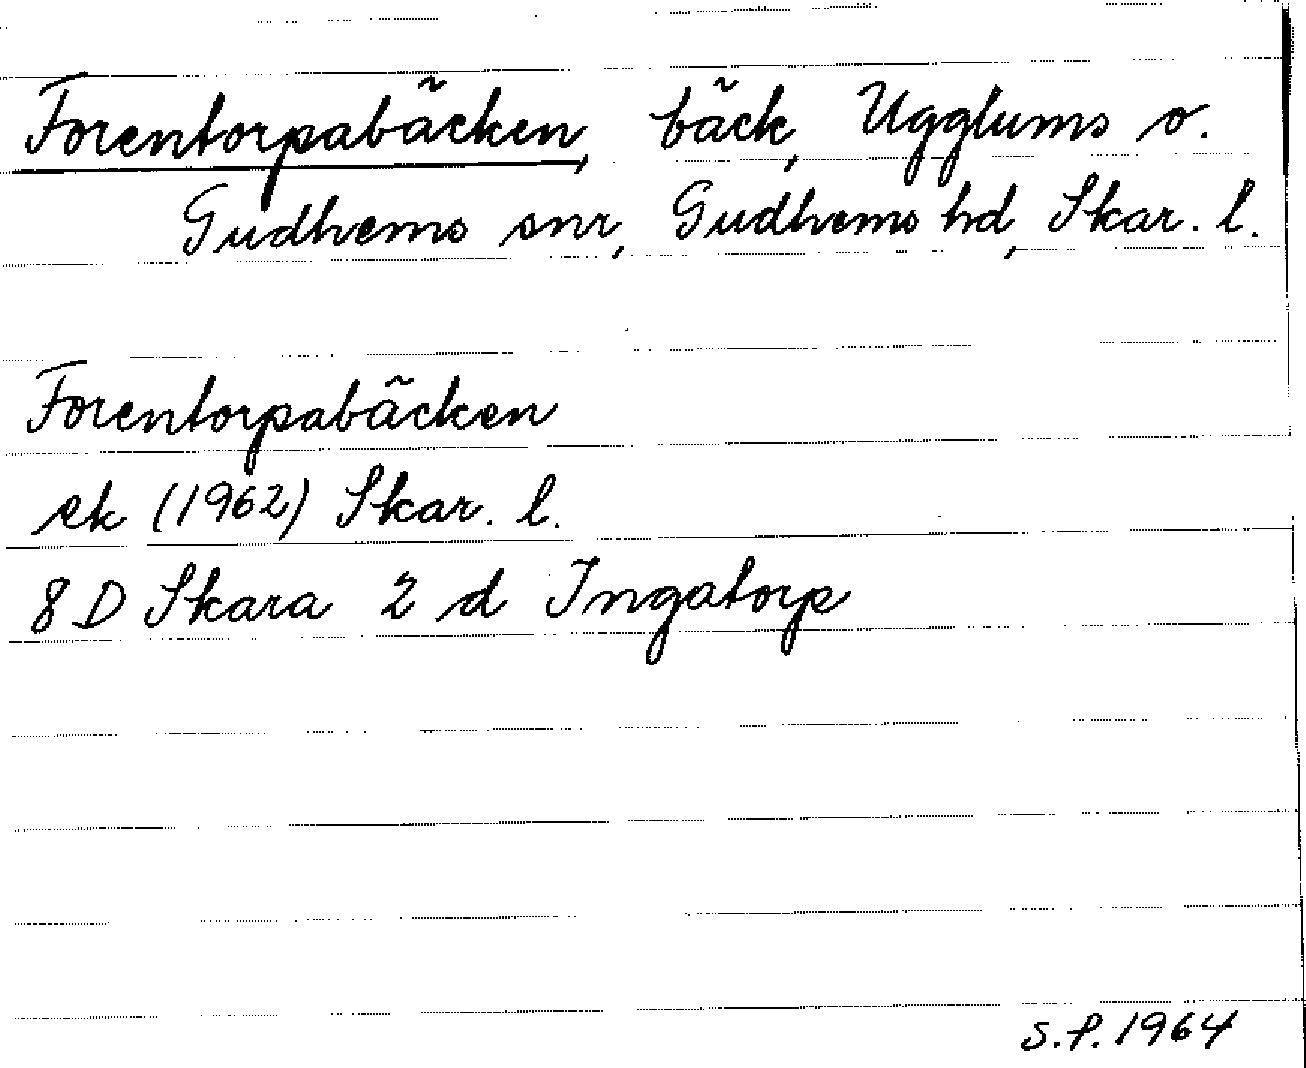 Forentorpabäcken, bäck, Ugglums o.
Gudhems snr, Gudhems hd, Skar. l.
Forentorpabäcken
ek (1962) Skar. l.
8 D Skara 2 d Ingatorp
S.P. 1964